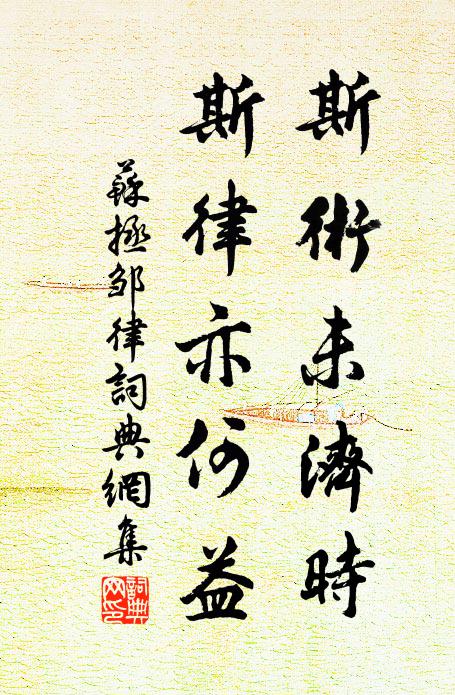 斯術未濟時
斯律亦何益
蘇拯邹律詞典網集
詞典
网印